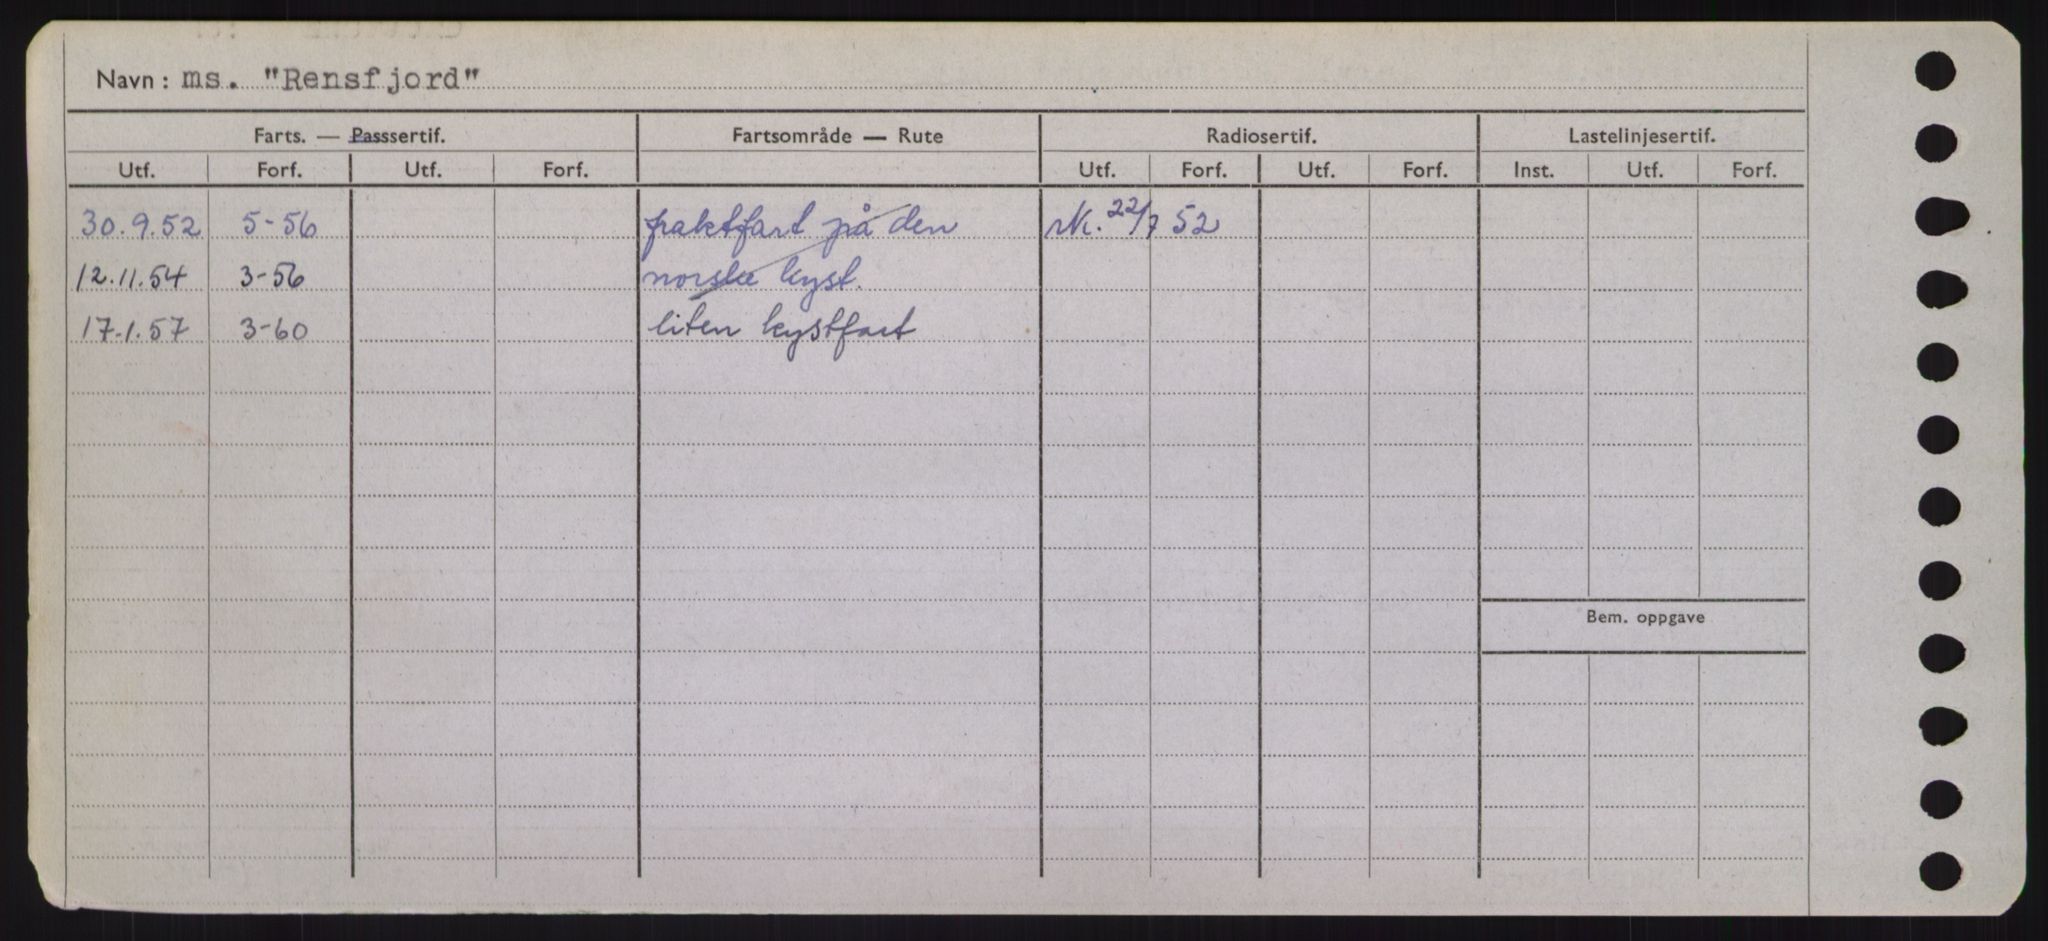 Navn: ms. "Rensfjord"
Farts. — Passsertif. Fartsområde — Rute Radiosertif. Lastelinjesertif.
Utf. Forf. Utf. Forf. Utf. Forf. Utf. Forf. Inst. Utf. Forf.
30.9.52 5-56 fraktfart på den 22/7 52
12.11.54 3-56 norske kyst.
17.1.57 3-60 liten kystfart
Bem. oppgave